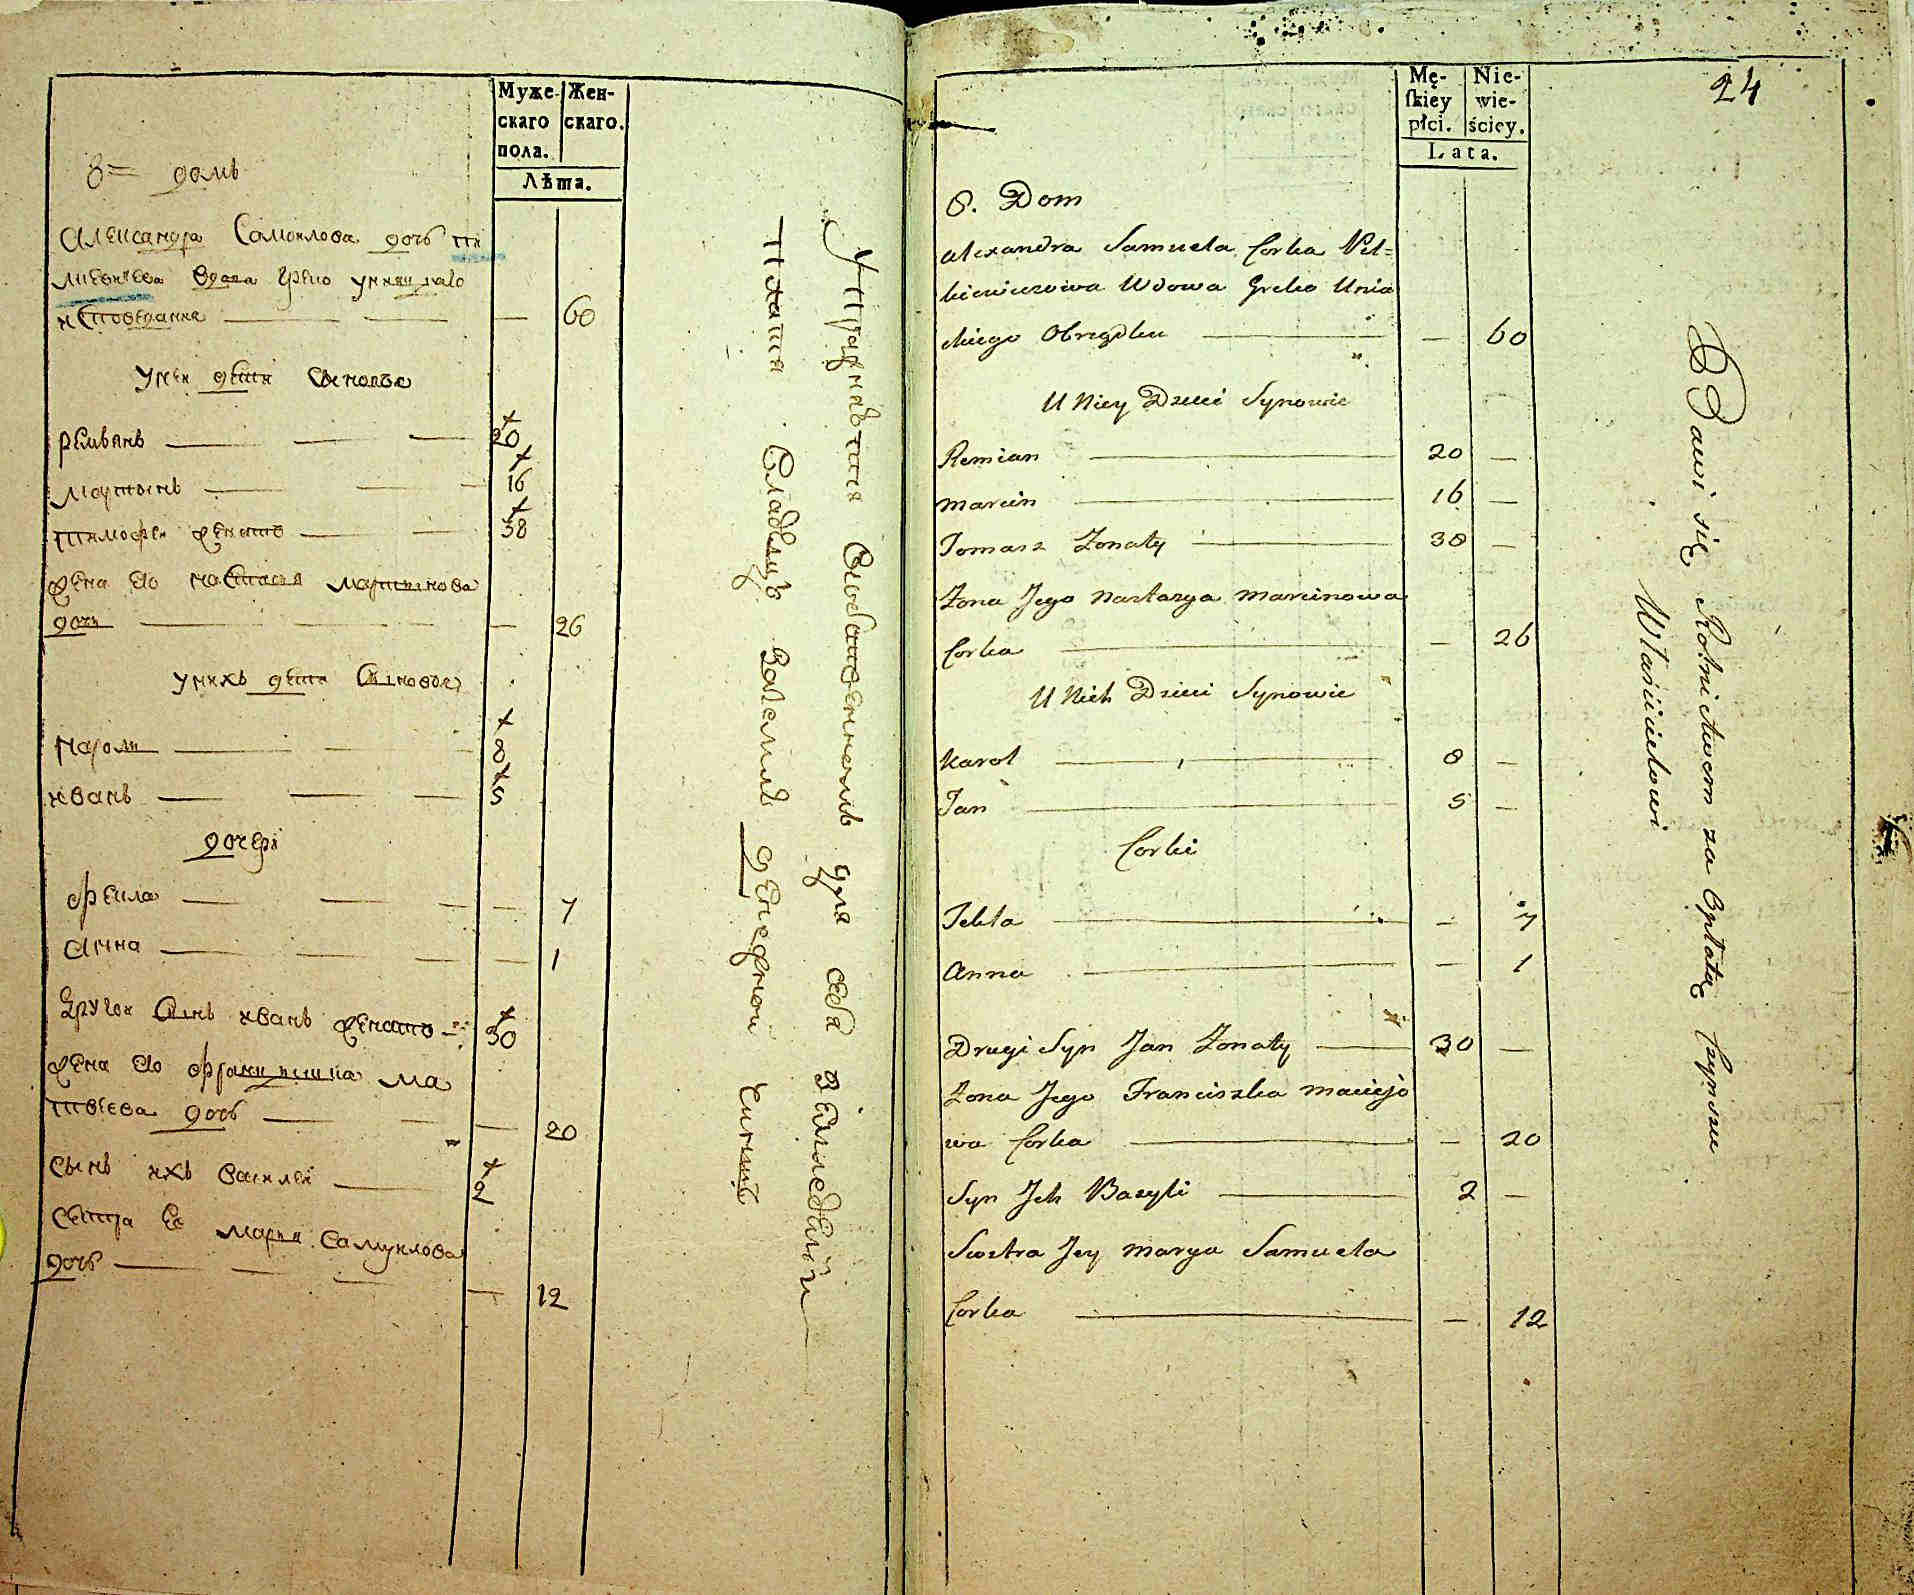 Муже-
скаго
пола.
Жен-
скаго.
Лѣта.
8= домъ
Александра Самойлова дочь пи
лкевичева вдова греко унияцкаго
исповедания — 60
У ней дети сыновья
Ремьянъ 20
Мартынъ 16
Тимофей женатъ 38
жена его Настасья Мартынова
дочь — 26
у нихъ дети сыновья
Кароль 8
Иванъ 5
дочери
Фекла — 7
Анна — 1
Другой сынъ Иванъ женатъ 30
жена его Францишка Ма
твеева дочь — 20
сынъ ихъ Василей 2
сестра ее Мария Самуилова
дочь — 12
Упражняется
для себя земледелии
платя владельцу
денежной чиншъ
24
Mę-
ſkiey
płci.
Nie-
wie-
ściey.
Lata.
8. Dom
Alexandra Samuela Corka Pil=
kiewiczowa Wdowa Greko Unia
ckiego Obrządku — 60
U Niey Dzieci Synowie
Remian 20 —
Marcin 16 —
Tomasz Zonaty 38 —
Zona Jego Nastazya Marcinowa
Corka — 26
U Nich Dzieci Synowie
Karol 8 —
Jan 5 —
Corki
Tekla — 7
Anna — 1
Drugi Syn Jan Zonaty 30 —
Zona Jego Franciszka Maciejo
wa Corka — 20
Syn Ich Bazyli 2 —
Siostra Jey Marya Samuela
Corka — 12
Bawi się Rolnictwem za Opłatą Czynszu
Właścicielowi